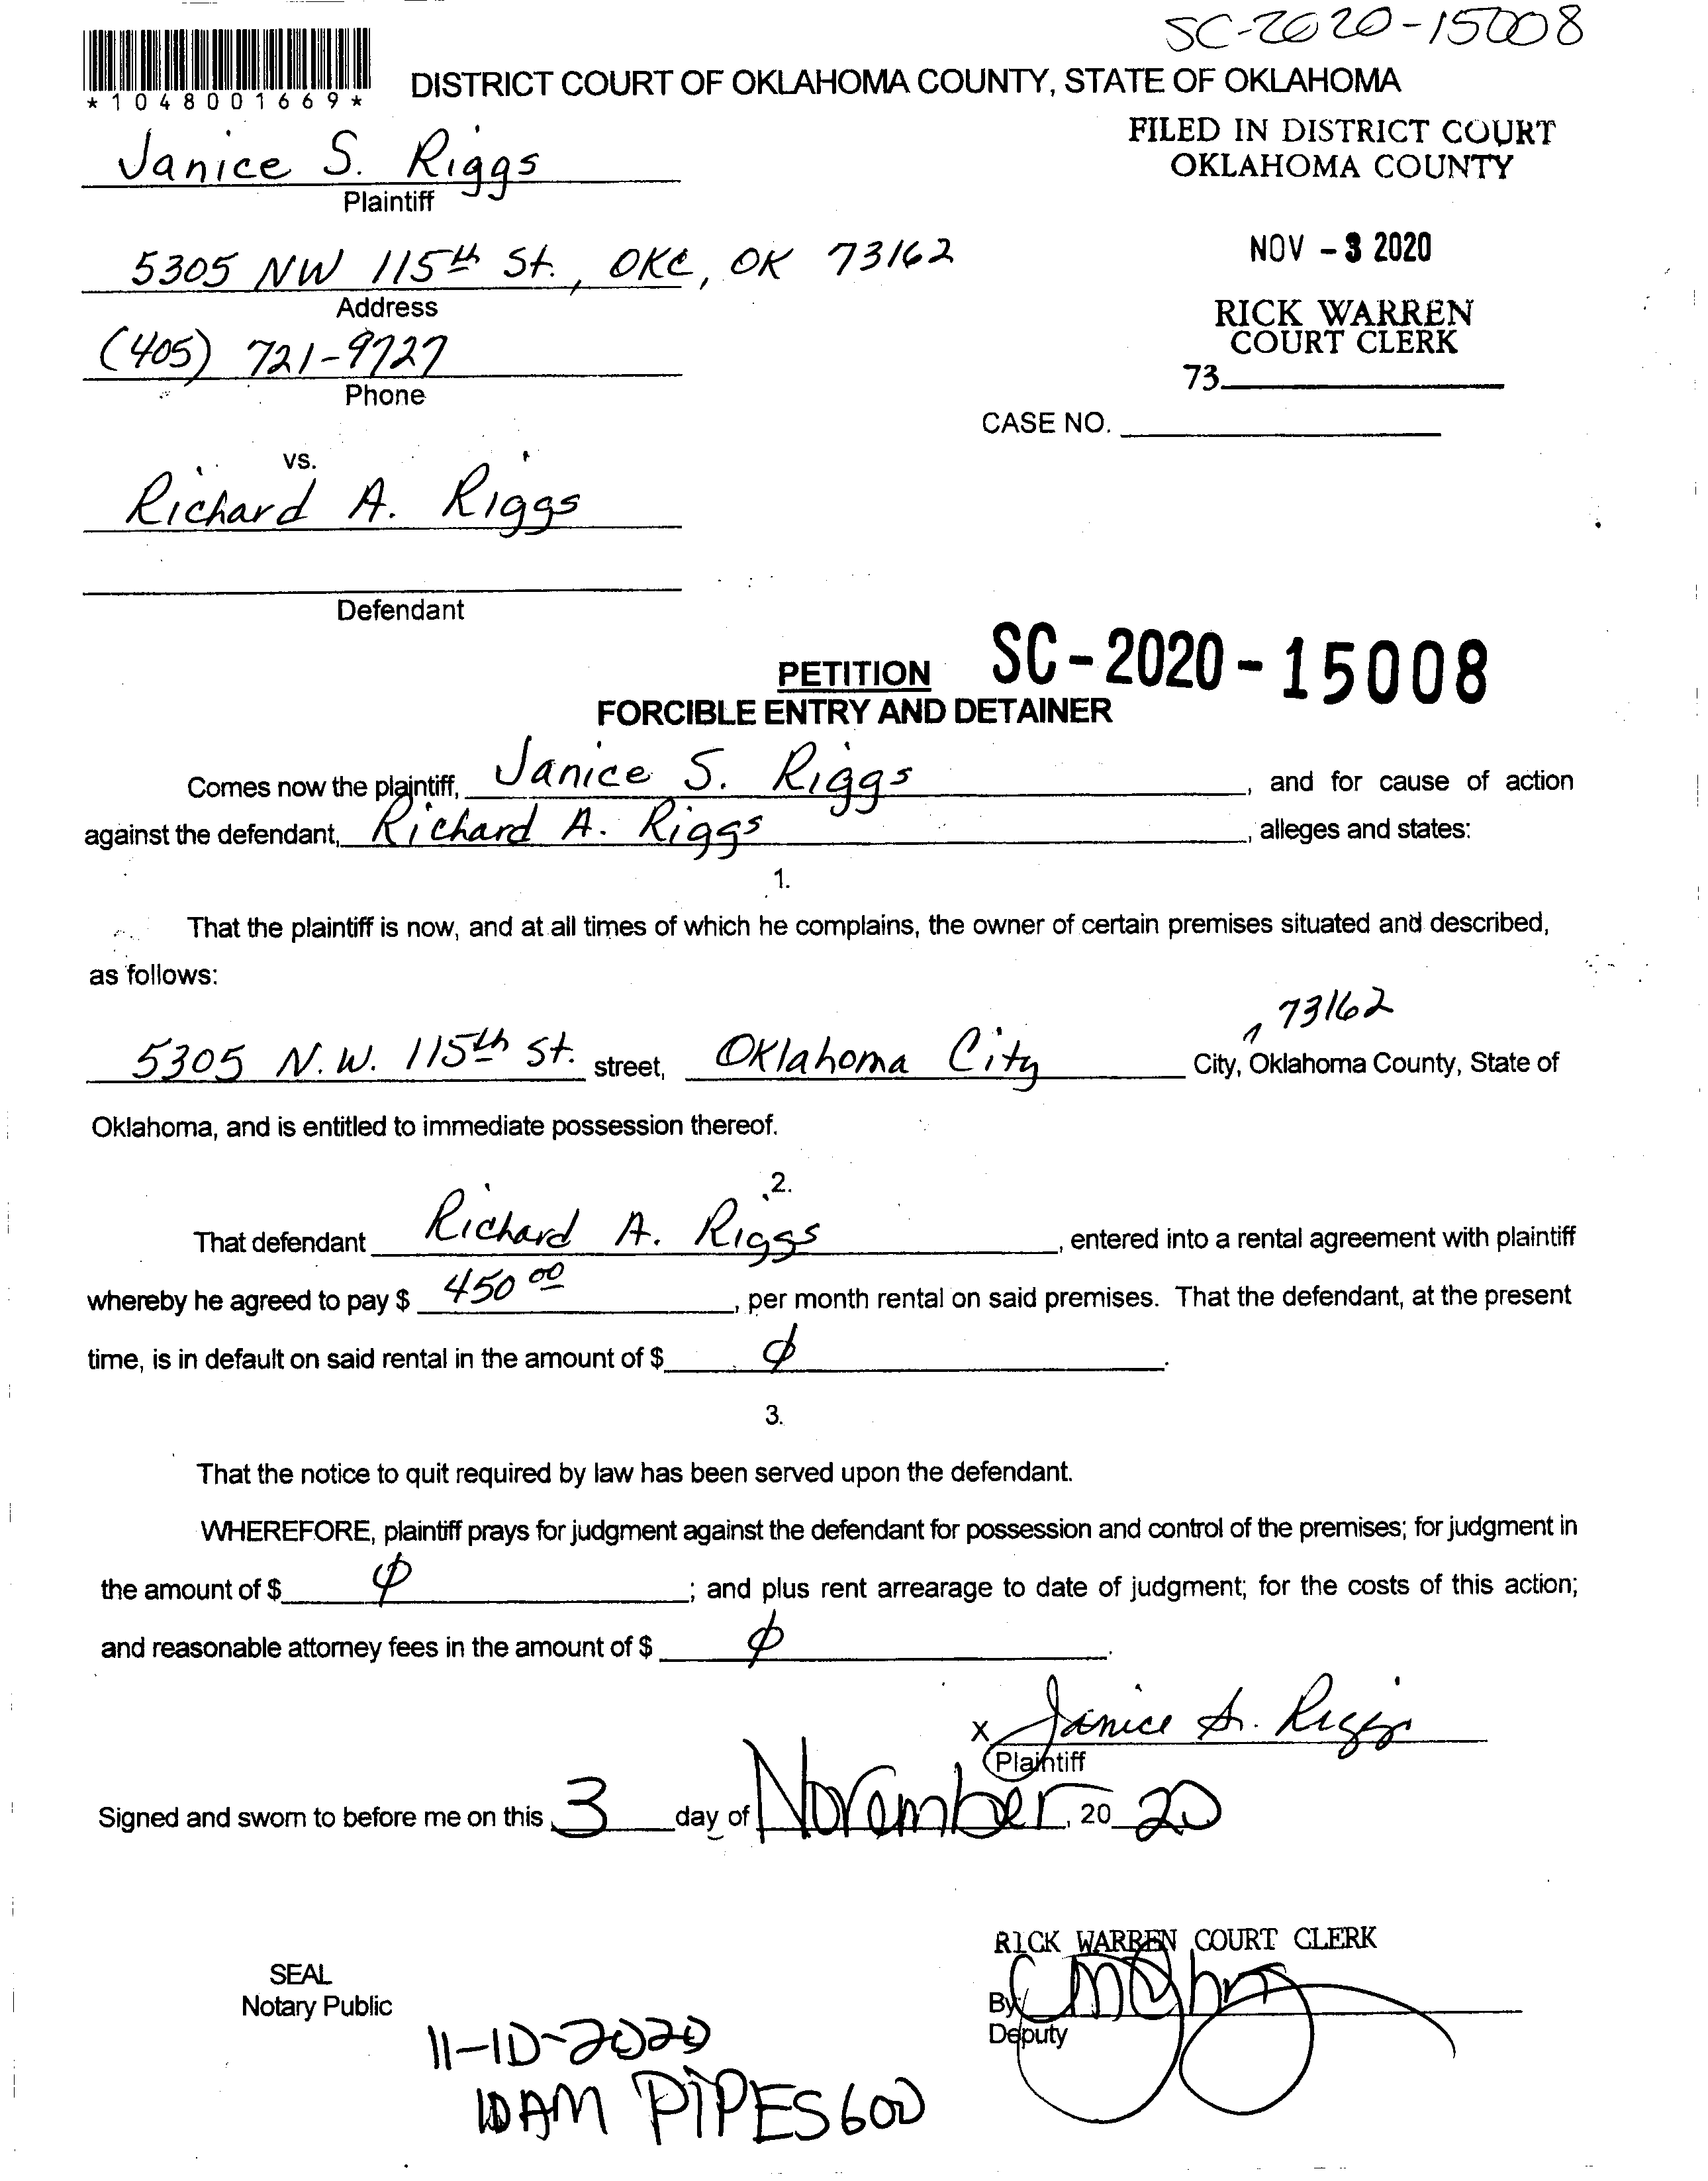 SC-2020-15008
*1048001669*
DISTRICT COURT OF OKLAHOMA COUNTY, STATE OF OKLAHOMA
FILED IN DISTRICT COURT
OKLAHOMA COUNTY
Janice S. Riggs
Plaintiff
NOV - 3 2020
5305 NW 115th St., OKC, OK 73162
Address
RICK WARREN
COURT CLERK
(405) 721-9727
Phone
73
CASE NO.
vs.
Richard A. Riggs
Defendant
SC-2020-15008
PETITION
FORCIBLE ENTRY AND DETAINER
Comes now the plaintiff, Janice S. Riggs, and for cause of action
against the defendant, Richard A. Riggs, alleges and states:
1.
That the plaintiff is now, and at all times of which he complains, the owner of certain premises situated and described,
as follows:
73162
5305 N.W. 115th St. street, Oklahoma City City, Oklahoma County, State of
Oklahoma, and is entitled to immediate possession thereof.
2.
That defendant Richard A. Riggs, entered into a rental agreement with plaintiff
whereby he agreed to pay $ 450 00, per month rental on said premises. That the defendant, at the present
time, is in default on said rental in the amount of $ ϕ.
3.
That the notice to quit required by law has been served upon the defendant.
WHEREFORE, plaintiff prays for judgment against the defendant for possession and control of the premises; for judgment in
the amount of $ ϕ; and plus rent arrearage to date of judgment; for the costs of this action;
and reasonable attorney fees in the amount of $ ϕ.
X Janice S. Riggs
Plaintiff
Signed and sworn to before me on this 3 day of November, 20 20
RICK WARREN COURT CLERK
SEAL
Notary Public
By
Deputy
11-10-2020
10AM PIPES 600